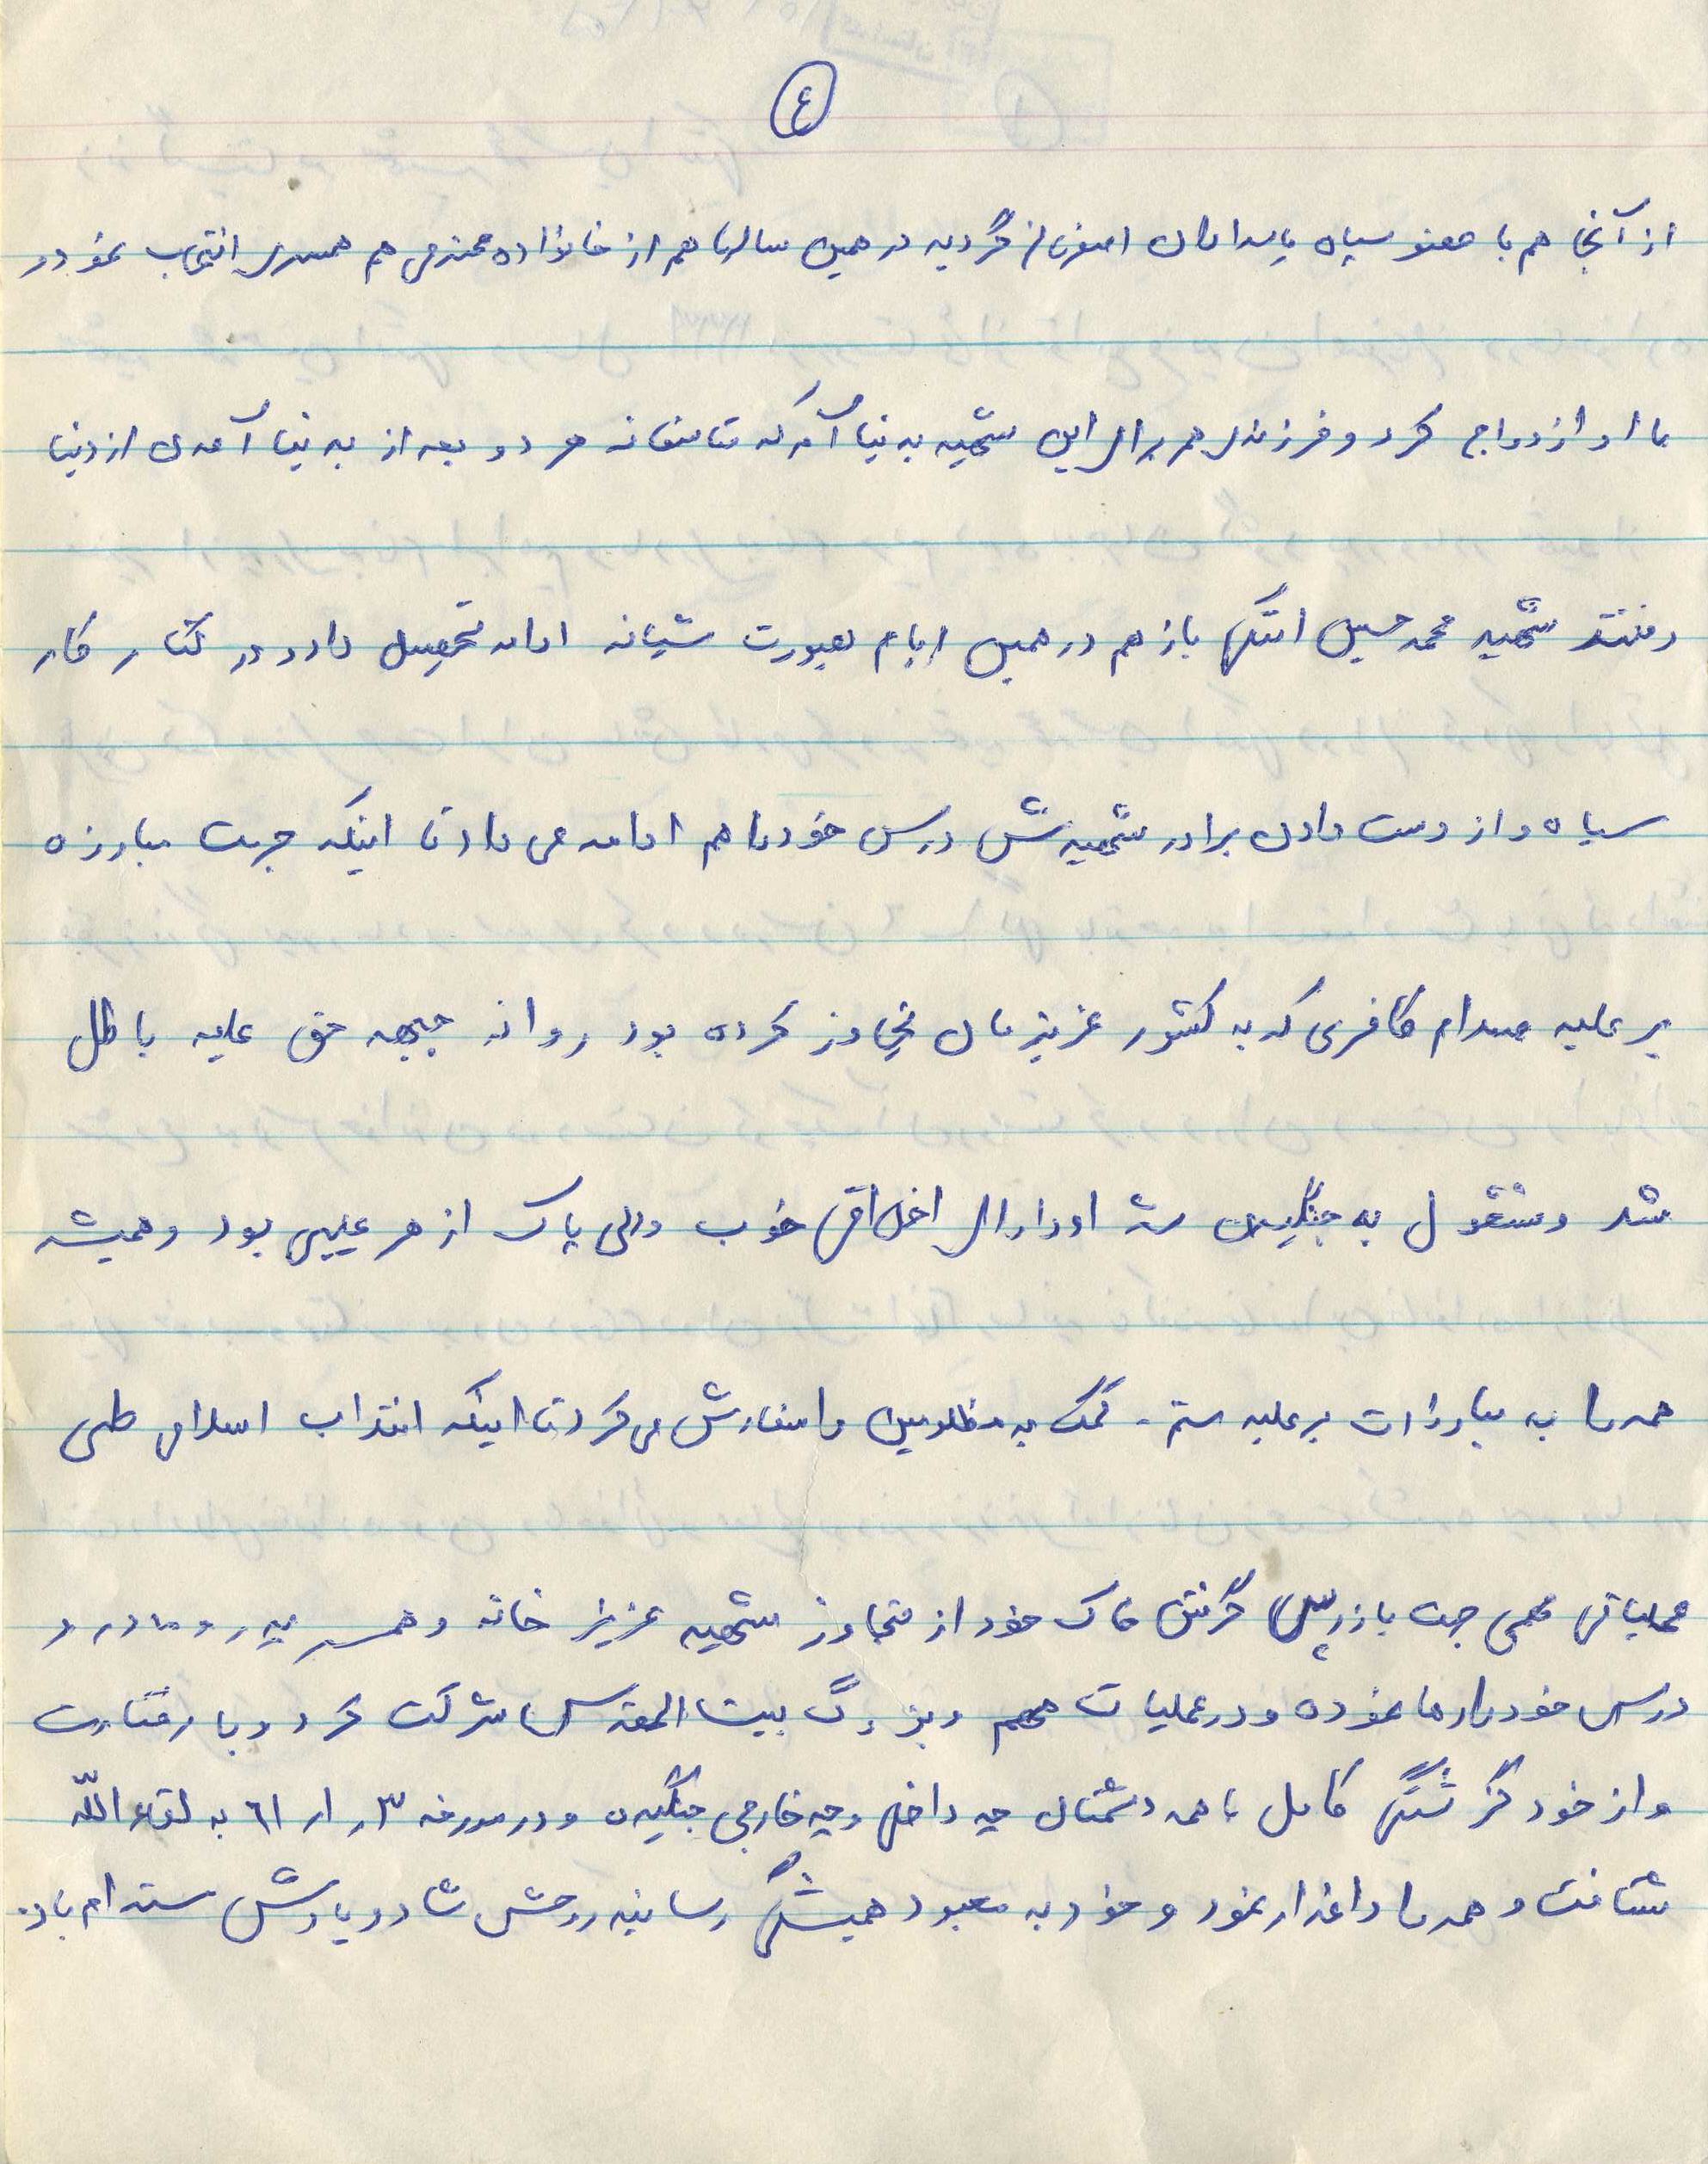 ٤
از آنجا هم با عضو سپاه پاسداران اصفهان گردید در همین سالها هم از خانواده محترمی هم همسری انتخاب نمود و
با او ازدواج کرد و فرزندی هم برای این شهید بدنیا آمد که متاسفانه هر دو بعد از بدنیا آمدن از دنیا
رفتند شهید محمد حسین باز هم در همین ایام بصورت شبانه ادامه تحصیل داد و در کنار کار
سپاه و از دست دادن برادر شهیدش درس خود را هم ادامه می داد تا اینکه جهت مبارزه
بر علیه صدام کافری که به کشور عزیزمان تجاوز کرده بود روانه جبهه حق علیه باطل
شد و مشغول به جنگیدن شد او دارای اخلاقی خوب و پاک از هر عیبی بود و همیشه
همه را به مبارزات بر علیه ستم - کمک به مظلومین را سفارش می کرد تا اینکه انقلاب اسلامی طی
عملیاتی مهمی جهت بازپس گرفتن خاک خود از متجاوز شهید عزیز خانه و همسر پدر و مادر و
درس خود را رها نموده و در عملیات مهم و بزرگ بیت المقدس شرکت کرد و با
و از خود گذشتگی کامل با همه دشمنان چه داخلی و چه خارجی جنگید و در مورخه ۳ ر ۱ ر ٦١ به لقاء الله
شتافت و همه را داغدار نمود و خود به معبود همیشگی رسانید روحش شاد و یادش مستدام باد.